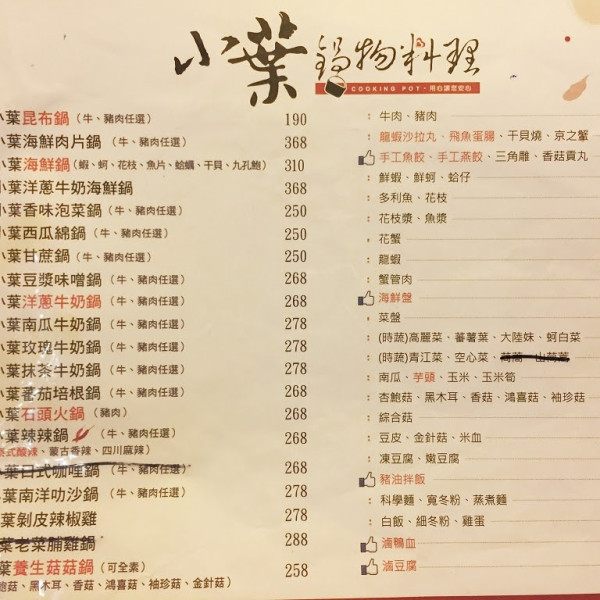 小葉 鍋物料理
COOKING POT・用心讓您安心
小葉昆布鍋（牛、豬肉任選） 190
小葉海鮮肉片鍋（牛、豬肉任選） 368
小葉海鮮鍋（蝦、蚵、花枝、魚片、蛤蠣、干貝、九孔鮑） 310
小葉洋蔥牛奶海鮮鍋 368
小葉香味泡菜鍋（牛、豬肉任選） 250
小葉西瓜綿鍋（牛、豬肉任選） 250
小葉甘蔗鍋（牛、豬肉任選） 250
小葉豆漿味噌鍋（牛、豬肉任選） 268
小葉洋蔥牛奶鍋（牛、豬肉任選） 268
小葉南瓜牛奶鍋（牛、豬肉任選） 278
小葉玫瑰牛奶鍋（牛、豬肉任選） 278
小葉抹茶牛奶鍋（牛、豬肉任選） 278
小葉蕃茄培根鍋（牛、豬肉任選） 268
小葉石頭火鍋（豬肉） 268
小葉辣辣鍋（牛、豬肉任選） 268
泰式酸辣、蒙古香辣、四川麻辣）
小葉日式咖哩鍋（牛、豬肉任選） 268
小葉南洋叻沙鍋（牛、豬肉任選） 278
葉剝皮辣椒雞 278
葉老菜脯雞鍋 288
葉養生菇菇鍋（可全素） 258
鮑菇、黑木耳、香菇、鴻喜菇、袖珍菇、金針菇）
：牛肉、豬肉
：龍蝦沙拉丸、飛魚蛋腸、干貝燒、京之蟹
手工魚餃、手工燕餃、三角雕、香菇貢丸
：鮮蝦、鮮蚵、蛤仔
：多利魚、花枝
：花枝漿、魚漿
：花蟹
：龍蝦
：蟹管肉
海鮮盤
：菜盤
：(時蔬)高麗菜、蕃薯葉、大陸妹、蚵白菜
：(時蔬)青江菜、空心菜、
：南瓜、芋頭、玉米、玉米筍
：杏鮑菇、黑木耳、香菇、鴻喜菇、袖珍菇
：綜合菇
：豆皮、金針菇、米血
：凍豆腐、嫩豆腐
豬油拌飯
：科學麵、寬冬粉、蒸煮麵
：白飯、細冬粉、雞蛋
滷鴨血
滷豆腐